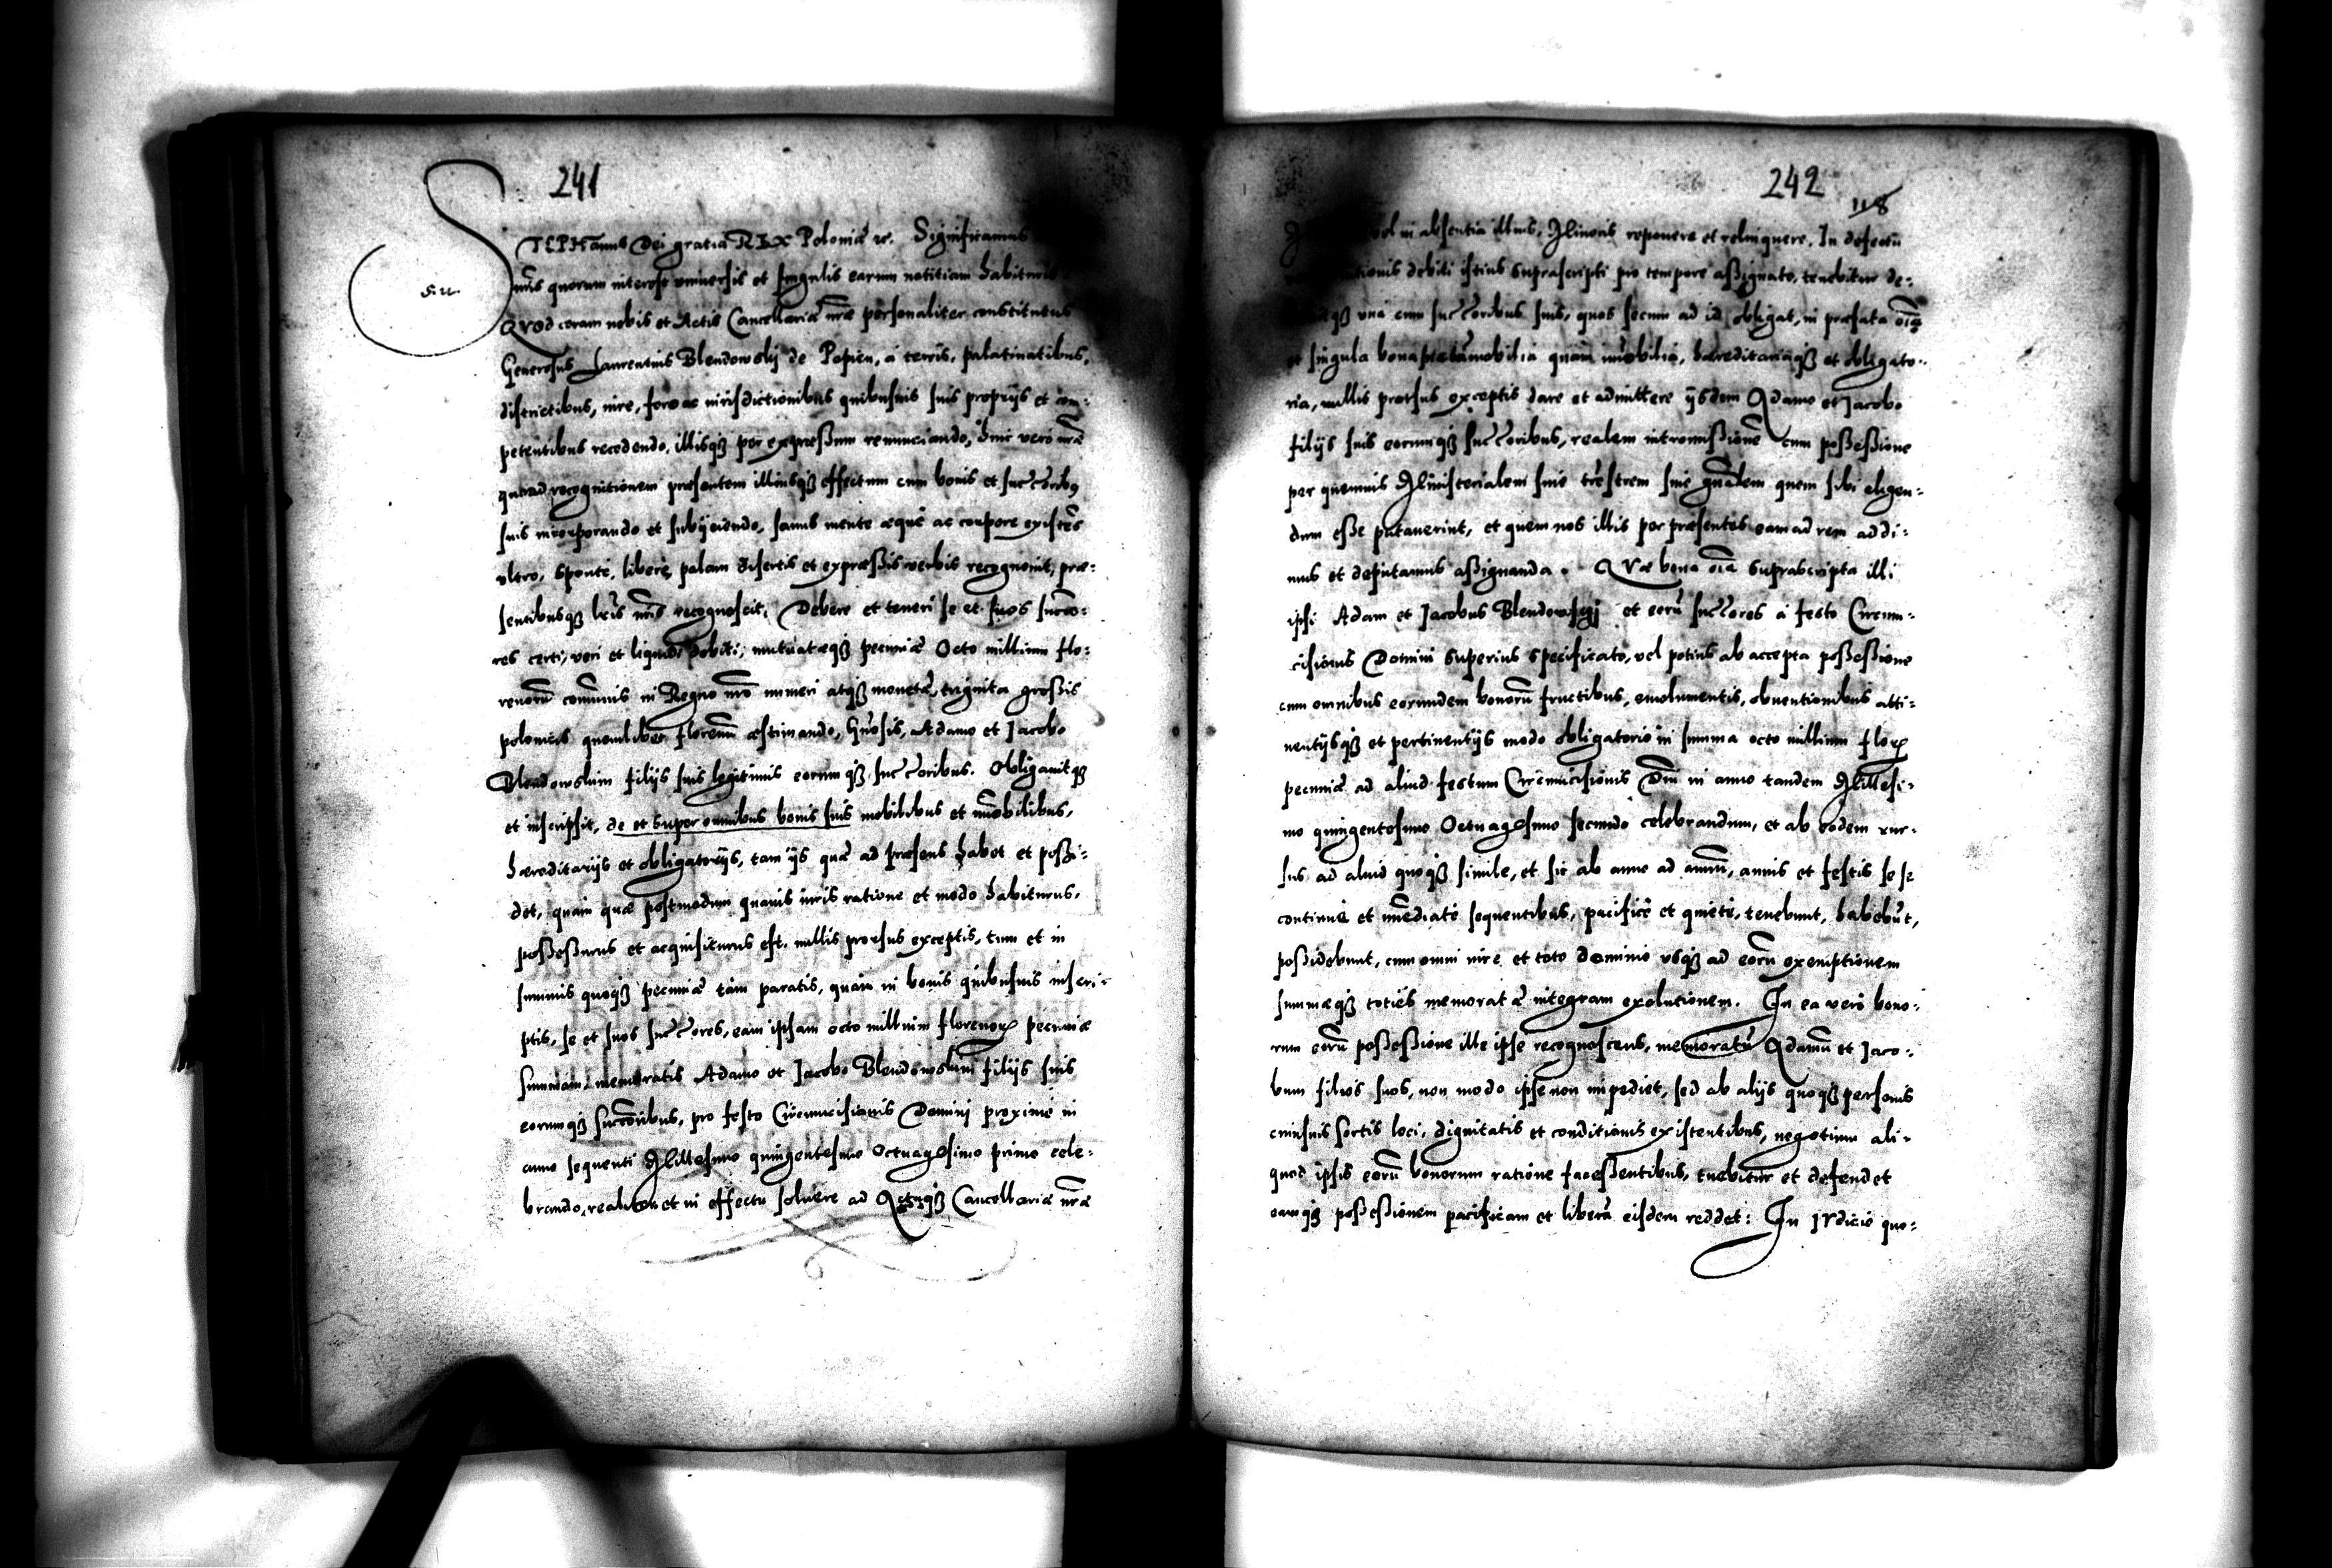 241
STEPHanus Dei gratia REX Poloniæ etc. Significamus
nr̃is quorum interest vniuersis et singulis earum notitiam habituris
Quod coram nobis et Actis Cancellariæ nr̃æ personaliter constitutus
Generosus Laurentius Blendowskij de Popien, a terris, palatinatibus,
districtibus, iure, foro ac iurisdictionibus quibusuis suis proprijs et com:
petentibus recedendo, illisq3 per expræssum renunciando, huic vero nr̃æ
quoad recognitionem præsentem illiusq3 effectum cum bonis et succ̃oribꝯ
suis incorporando et subijciendo, sanus mente æque ac corpore existẽs
vltro, sponte, libere, palam disertis et expræssis verbis recognouit, præ:
sentibusq3 lr̃is nr̃is recognoscit: Debere et teneri se et suos succo:
res certi, veri et liquidi debiti, mutuatæq3 pecuniæ Octo millium flo:
renorũ com̃unis in Regno nr̃o numeri atq3 monetæ, triginta grossis
polonicis quemlibet florenũ æstimando, Gñosis, Adamo et Jacobo
Blendowskim filijs suis legitimis eorumq3 succ̃oribus. Obligauitq3
et inscripsit, de et super omnibus bonis suis mobilibus et im̃obilibus,
hæreditarijs et obligatorijs, tam ijs quæ ad præsens habet et possi:
det, quam quæ postmodum quauis iuris ratione et modo habiturus,
possessurus et acquisiturus est. nullis prorsus exceptis, tum et in
summis quoq3 pecuniæ tam paratis, quam in bonis quibusuis inscri:
ptis, se et suos succ̃ores, eam ipsam octo millium florenorꝝ pecuniæ
summam, memoratis Adamo et Jacobo Blendowskim filijs suis
eorumq3 succ̃oribus, pro festo Circumcisionis Domini proxime in
anno sequenti Millesimo quingentesimo Octuagesimo primo cele:
brando, realiter et in effectu soluere ad Actaq3 Cancellariæ nr̃æ
242
118
vel in absentia illius, Minoris reponere et relinquere. In defectu
debiti istius suprascripti pro tempore assignato, tenebitur de:
vna cum succ̃oribus suis, quos secum ad id obligat, in præfata oĩa
et singula bona tam mobilia quam im̃obilia, hæreditariaq3 et obligato:
ria, nullis prorsus exceptis dare et admittere ijsdem Adamo et Jacobo
filijs suis eorumq3 succ̃oribus, realem intromissionẽ cum possessione
per quemuis Ministerialem siue tr̃estrem siue gñalem quem sibi eligen:
dum esse putauerint, et quem nos illis per præsentes eam ad rem addi:
mus et deputamus assignanda. Quæ bona oĩa suprascripta illi
ipsi Adam et Jacobus Blendowscij et eorũ succ̃ores a festo Circum:
cisionis Domini superius specificato, vel potius ab accepta possessione
cum omnibus eorundem bonorũ fructibus, emolumentis, obuentionibus atti:
nentijsq3 et pertinentijs modo obligatorio in summa octo millium florꝝ
pecuniæ ad aliud festum Circumcisionis Dñi in anno tandem Millesi:
mo quingentesimo Octuagesimo secundo celebrandum, et ab eodem rur:
sus ad aliud quoq3 simile, et sic ab anno ad annũ, annis et festis se se
continue et im̃ediate sequentibus, pacifice et quiete, tenebunt, habebũt,
possidebunt, cum omni iure et toto dominio vsq3 ad eorũ exemptionem
summæq3 toties memoratæ integram exolutionem. In ea vero bono:
rum eorũ possessione ille ipse recognoscens, memoratũ Adamũ et Jaco:
bum filios suos, non modo ipse non impediet, sed ab alijs quoq3 personis
cuiusuis sortis loci, dignitatis et conditionis existentibus, negotium ali:
quod ipsis eorũ bonorum ratione facessentibus, tuebitur et defendet
eamq3 possessionem pacificam et liberã eisdem reddet: In Iudicio quo: